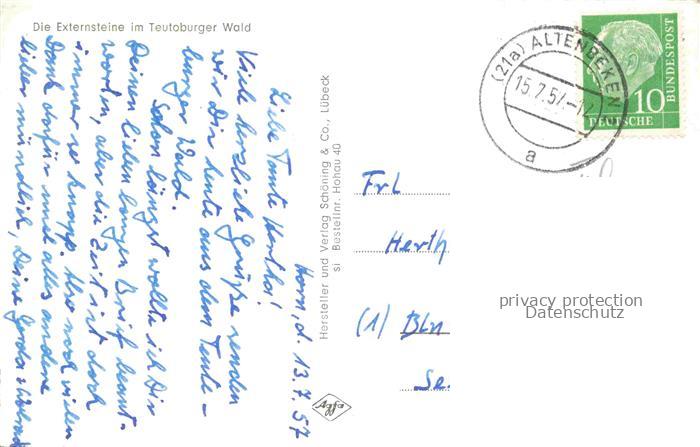 Die Externsteine im Teutoburger Wald
Horn, d. 13.7.57
Liebe Tante Hertha!
Viele herzliche Grüße senden
wir Dir heute aus dem Teuto-
burger Wald.
Schon längst wollte ich Dir
Deinen lieben langen Brief beant-
worten, aber die Zeit ist doch
immer so knapp. Hab noch vielen
Dank dafür und alles andere
lieber mündlich, Deine Gerda
Hersteller und Verlag Schöning & Co., Lübeck
si Bestellnr. Hohau 40
Agfa
(21a) ALTENBEKEN
15.7.57.-14
a
10
DEUTSCHE
BUNDESPOST
Frl
Herth
(1) Bln
Se.
privacy protection
Datenschutz